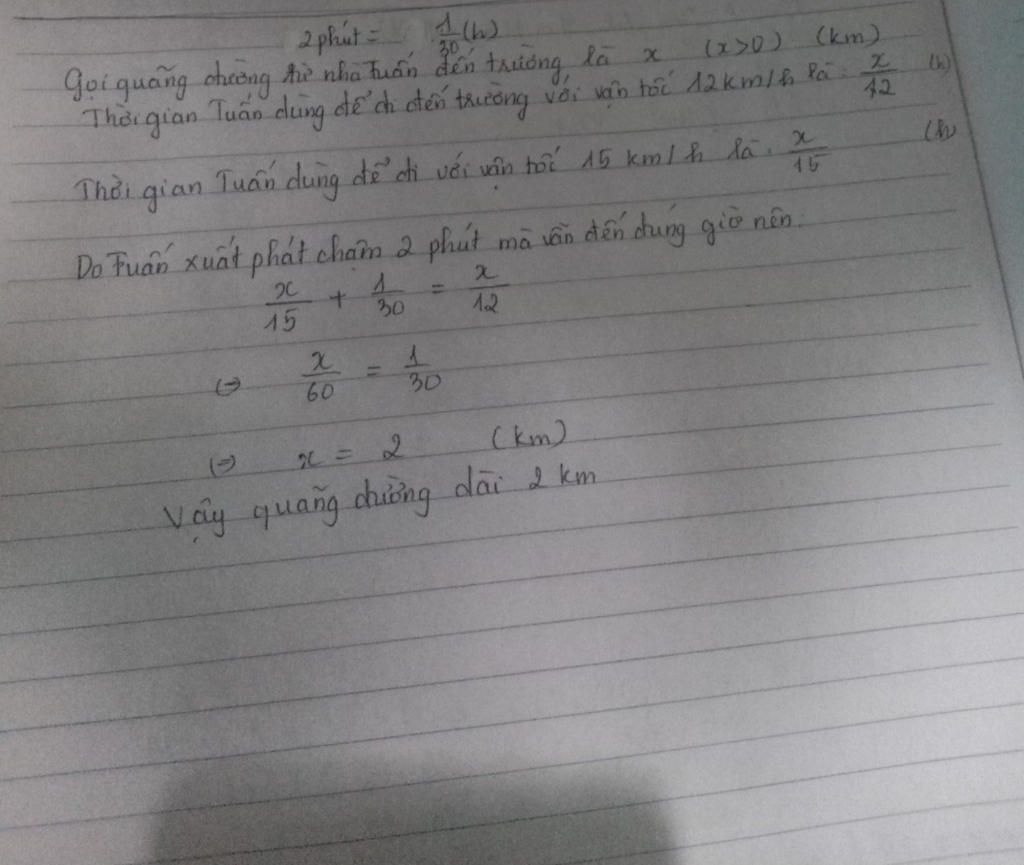 2 phút = 1/30 (h)
Gọi quãng đường từ nhà Tuấn đến trường là x (x>0) (km)
Thời gian Tuấn dùng để đi đến trường với vận tốc 12km/h là: x/12 (h)
Thời gian Tuấn dùng để đi với vận tốc 15 km/h là: x/15 (h)
Do Tuấn xuất phát chậm 2 phút mà vẫn đến đúng giờ nên:
x/15 + 1/30 = x/12
(=) x/60 = 1/30
(=) x = 2 (km)
Vậy quãng đường dài 2 km